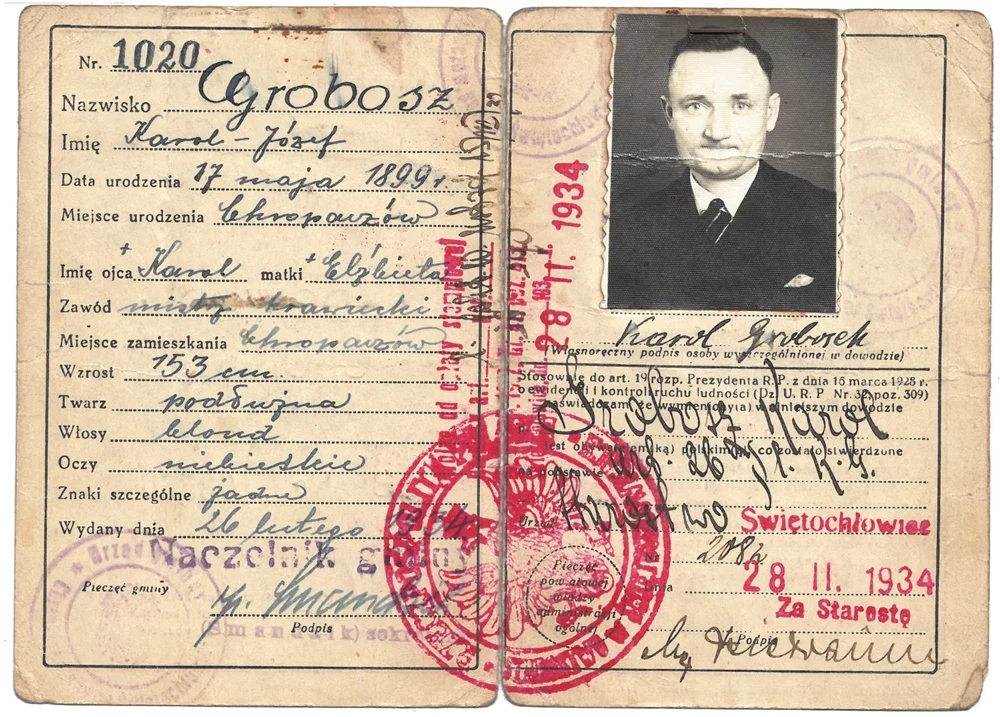 Nr. 1020
Nazwisko Grobosz
Imię Karol-Józef
Data urodzenia 17 maja 1899 r.
Miejsce urodzenia Chropaczów
Imię ojca + Karol matki + Elżbieta
Zawód mistrz krawiecki
Miejsce zamieszkania Chropaczów
Wzrost 153 cm
Twarz podłużna
Włosy blond
Oczy niebieskie
Znaki szczególne żadne
Wydany dnia 26 lutego 1934.
Naczelnik gminy
Pieczęć gminy
Podpis
od opłaty stemplowej
28 II. 1934
Karol Grobosch
(Własnoręczny podpis osoby wyszczególnionej w dowodzie)
Stosownie do art. 19 rozp. Prezydenta R. P. z dnia 16 marca 1928 r.
o ewidencji i kontroli ruchu ludności (Dz. U. R. P Nr. 32, poz. 309)
zaświadczam, że wymieniony(a) w niniejszym dowodzie
Grobosz Karol
jest obywatelem(ką) polskim(ą) co zostało stwierdzone
na podstawie art. 26 G.
Urząd Starostwo Świętochłowice
Nr. 208
Dnia 28 II. 1934
Za Starostę
Pieczęć
powiatowej
władzy
administracji
ogólnej
Podpis